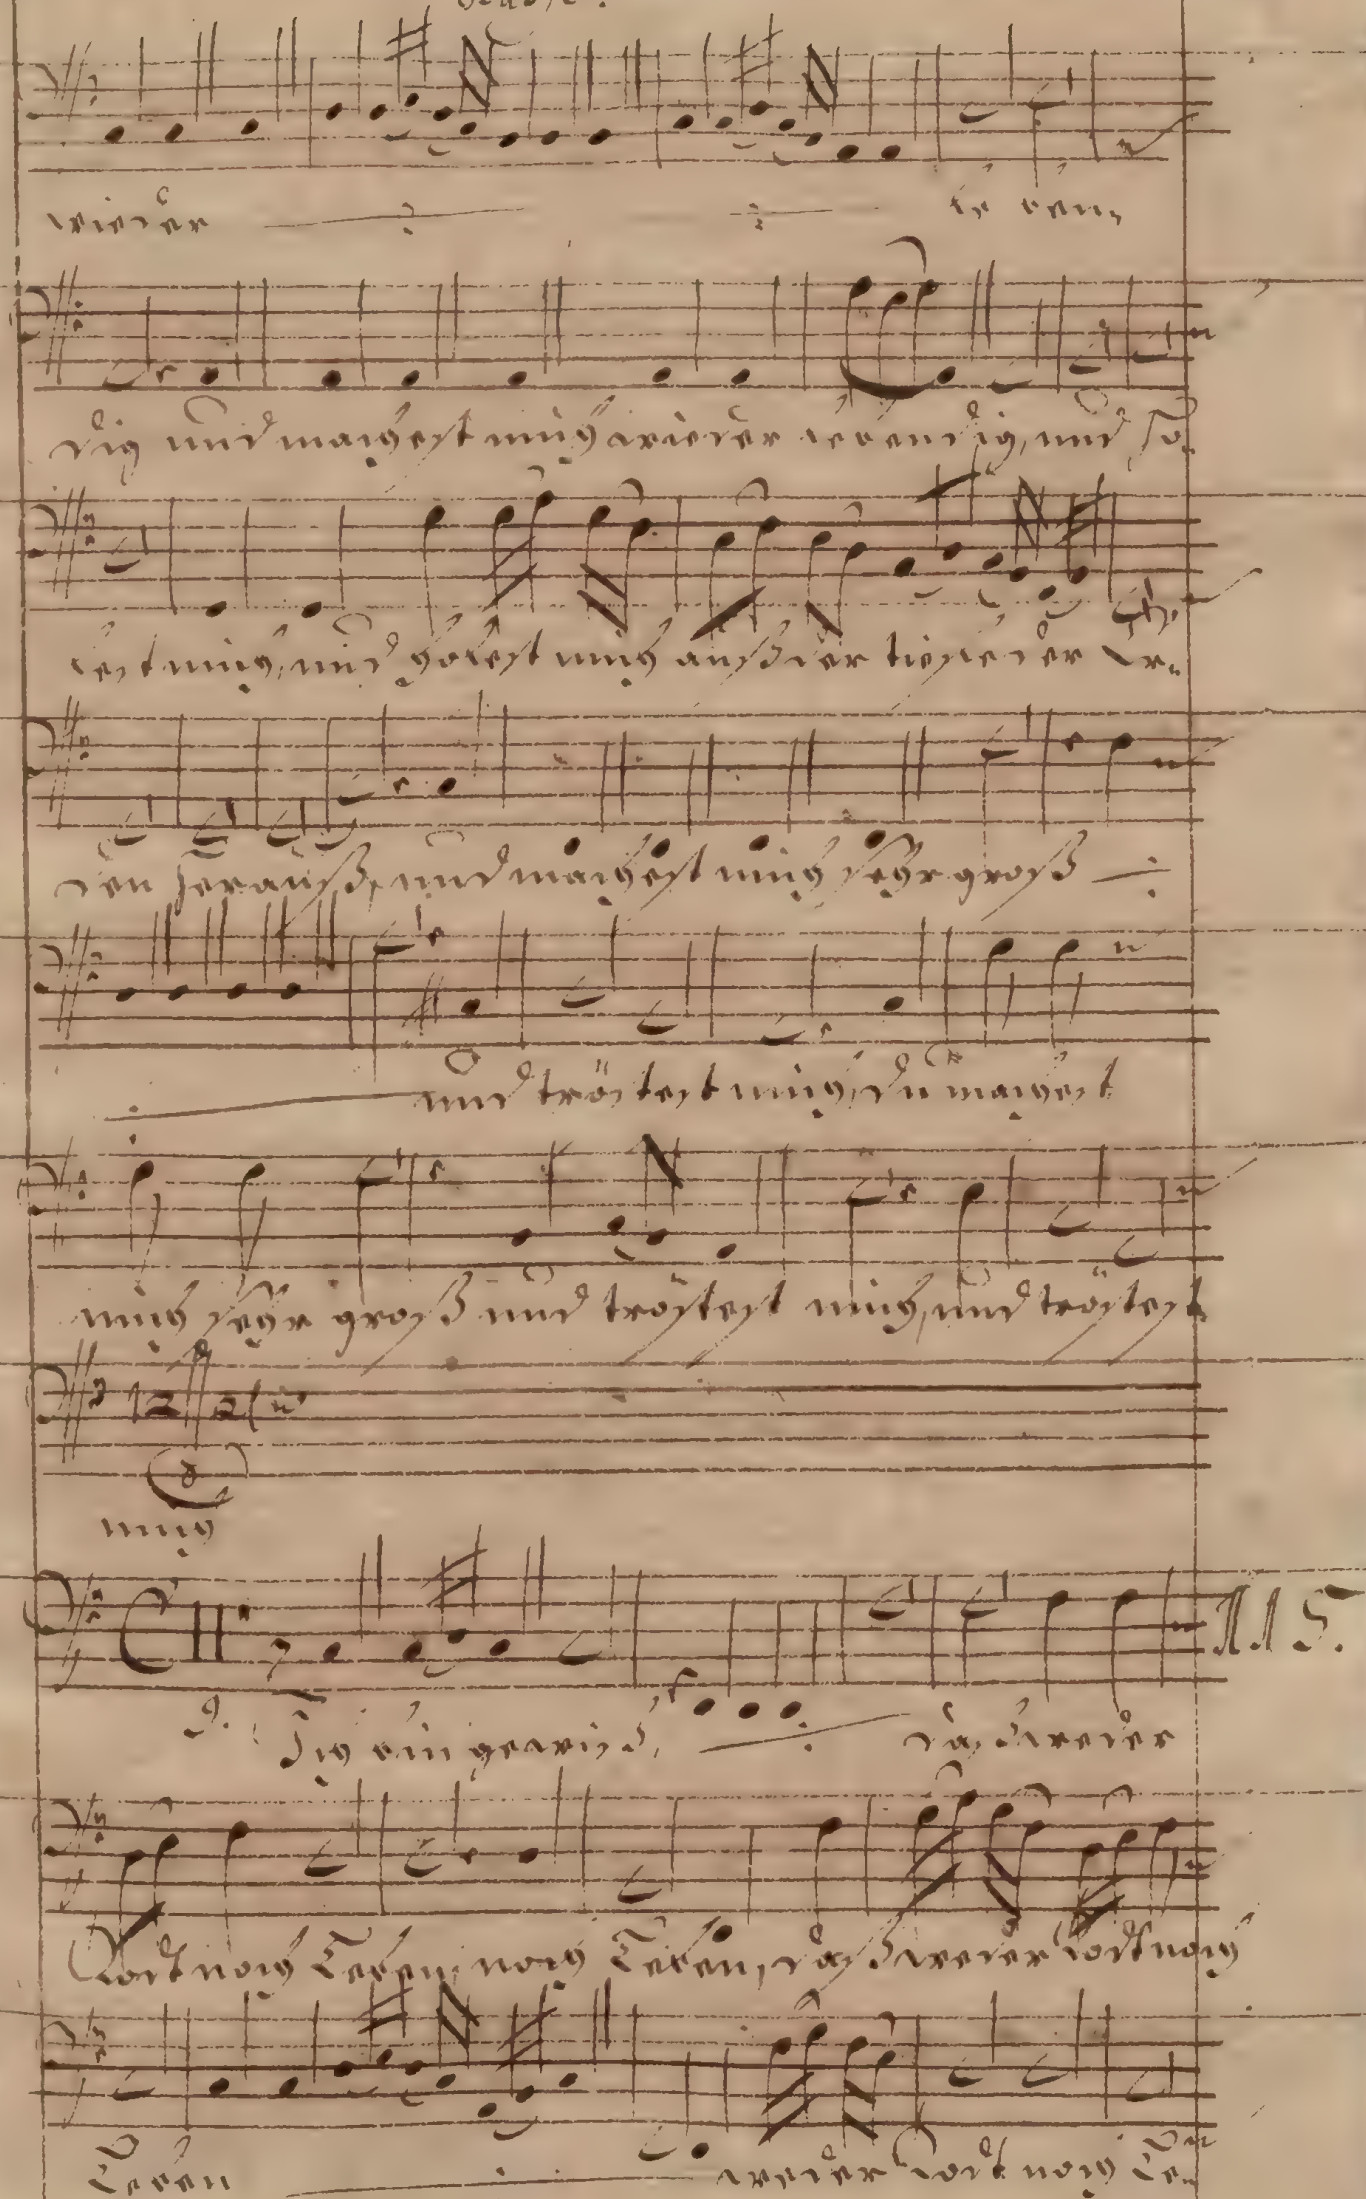 wieder le ben,
dig und machest mich wieder lebendig, und ho,
lest mich, und holest mich auß der tieffe der Er,
den herauß, und machest mich sehr groß
und tröstest mich, du machest
mich sehr groß und tröstest mich, und tröstest
mich
115.
Ich bin gewiß, daß weder
Todt noch Leben, noch Leben, daß weder Todt noch
Leben weder Todt noch Le,